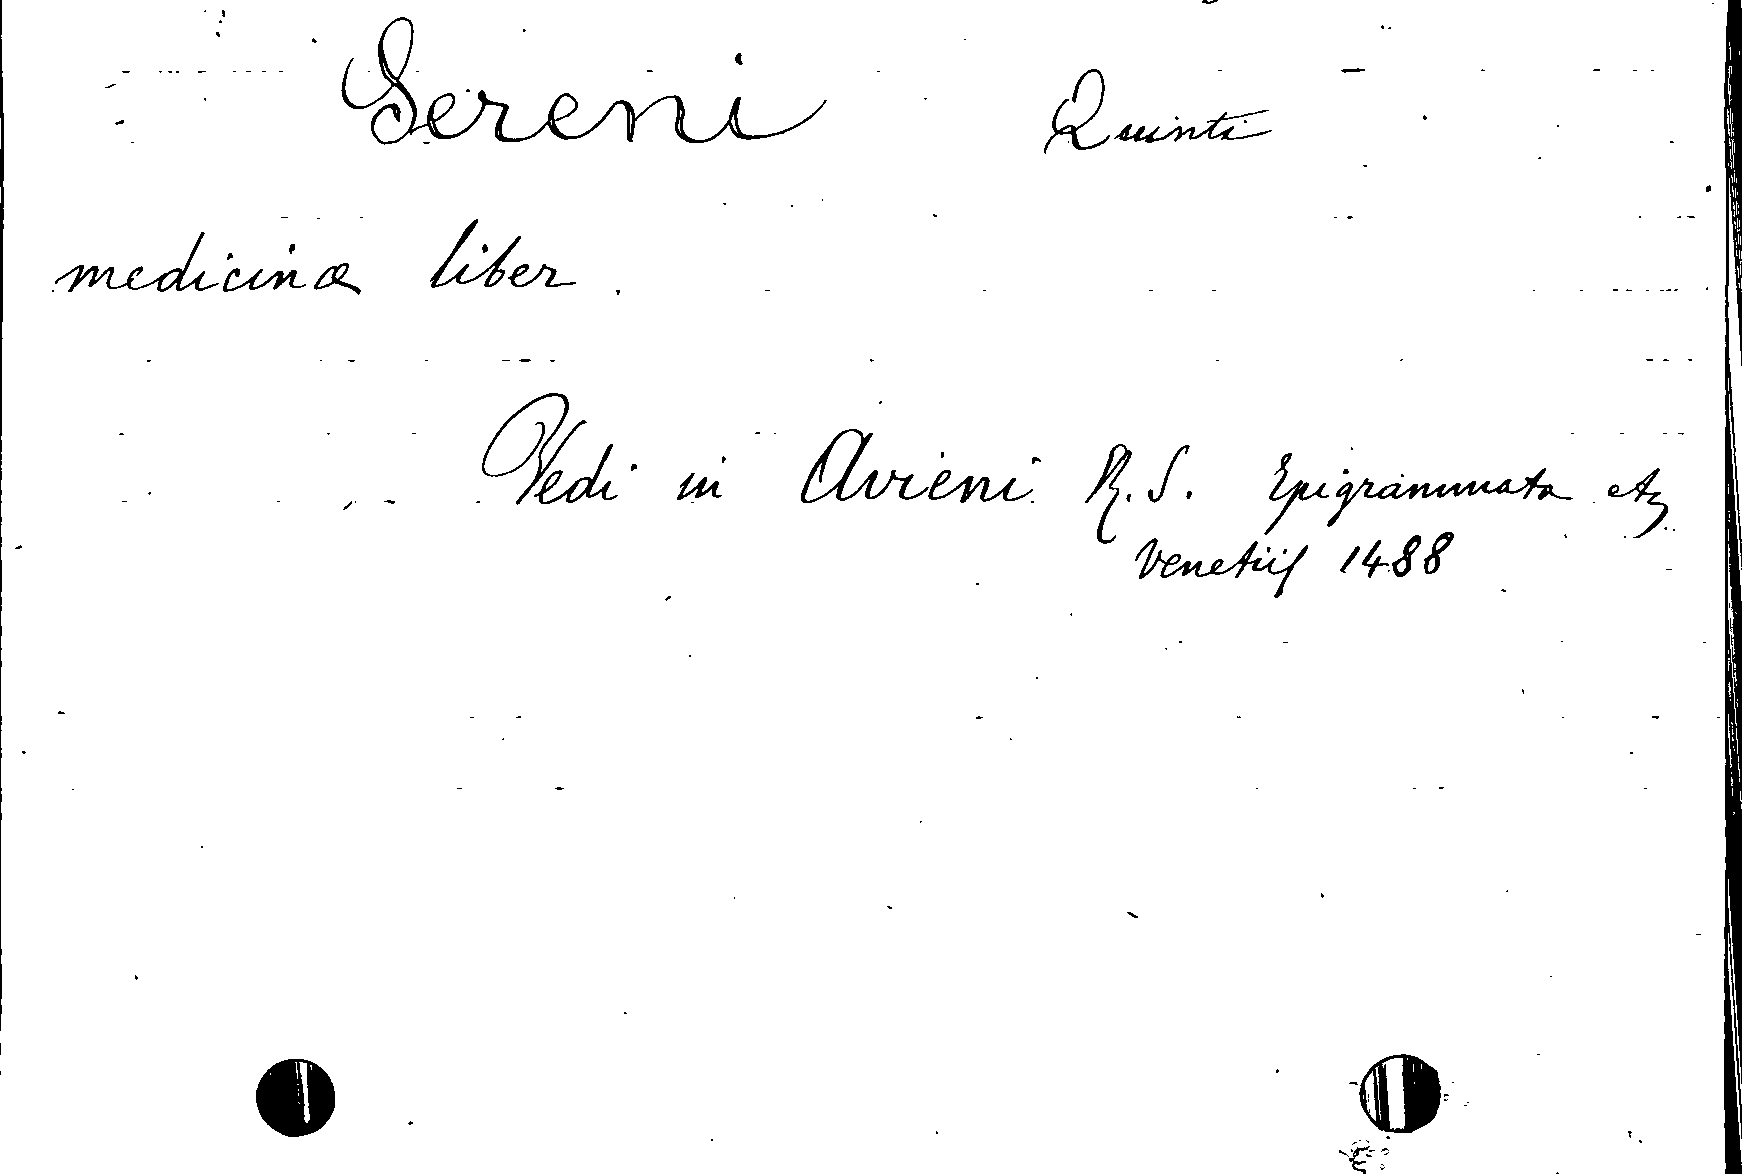 Sereni Quinti
medicinæ liber.
Vedi in Avieni R. S. Epigrammata etz
Venetiis 1488